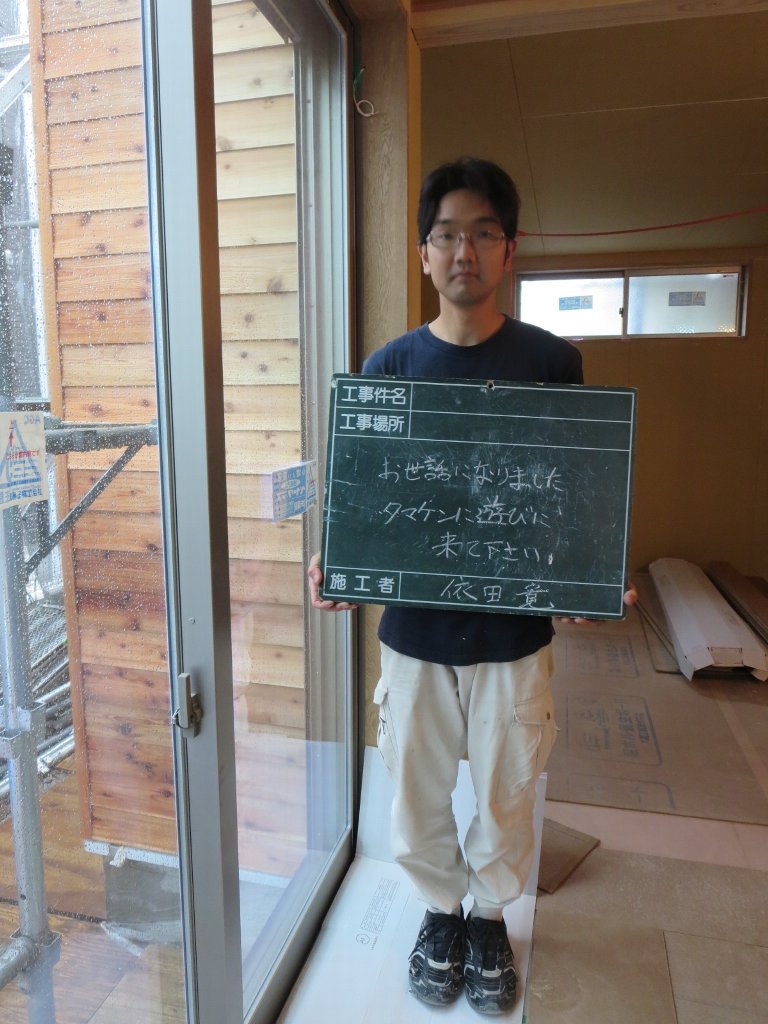 工事件名
工事場所
お世話になりました
タマケンに遊びに
来て下さい。
施工者 依田 寛